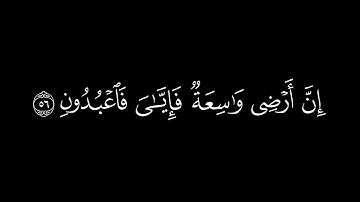 إِنَّ أَرْضِى وَٰسِعَةٌ فَإِيَّـٰىَ فَٱعْبُدُونِ ۝٥٦